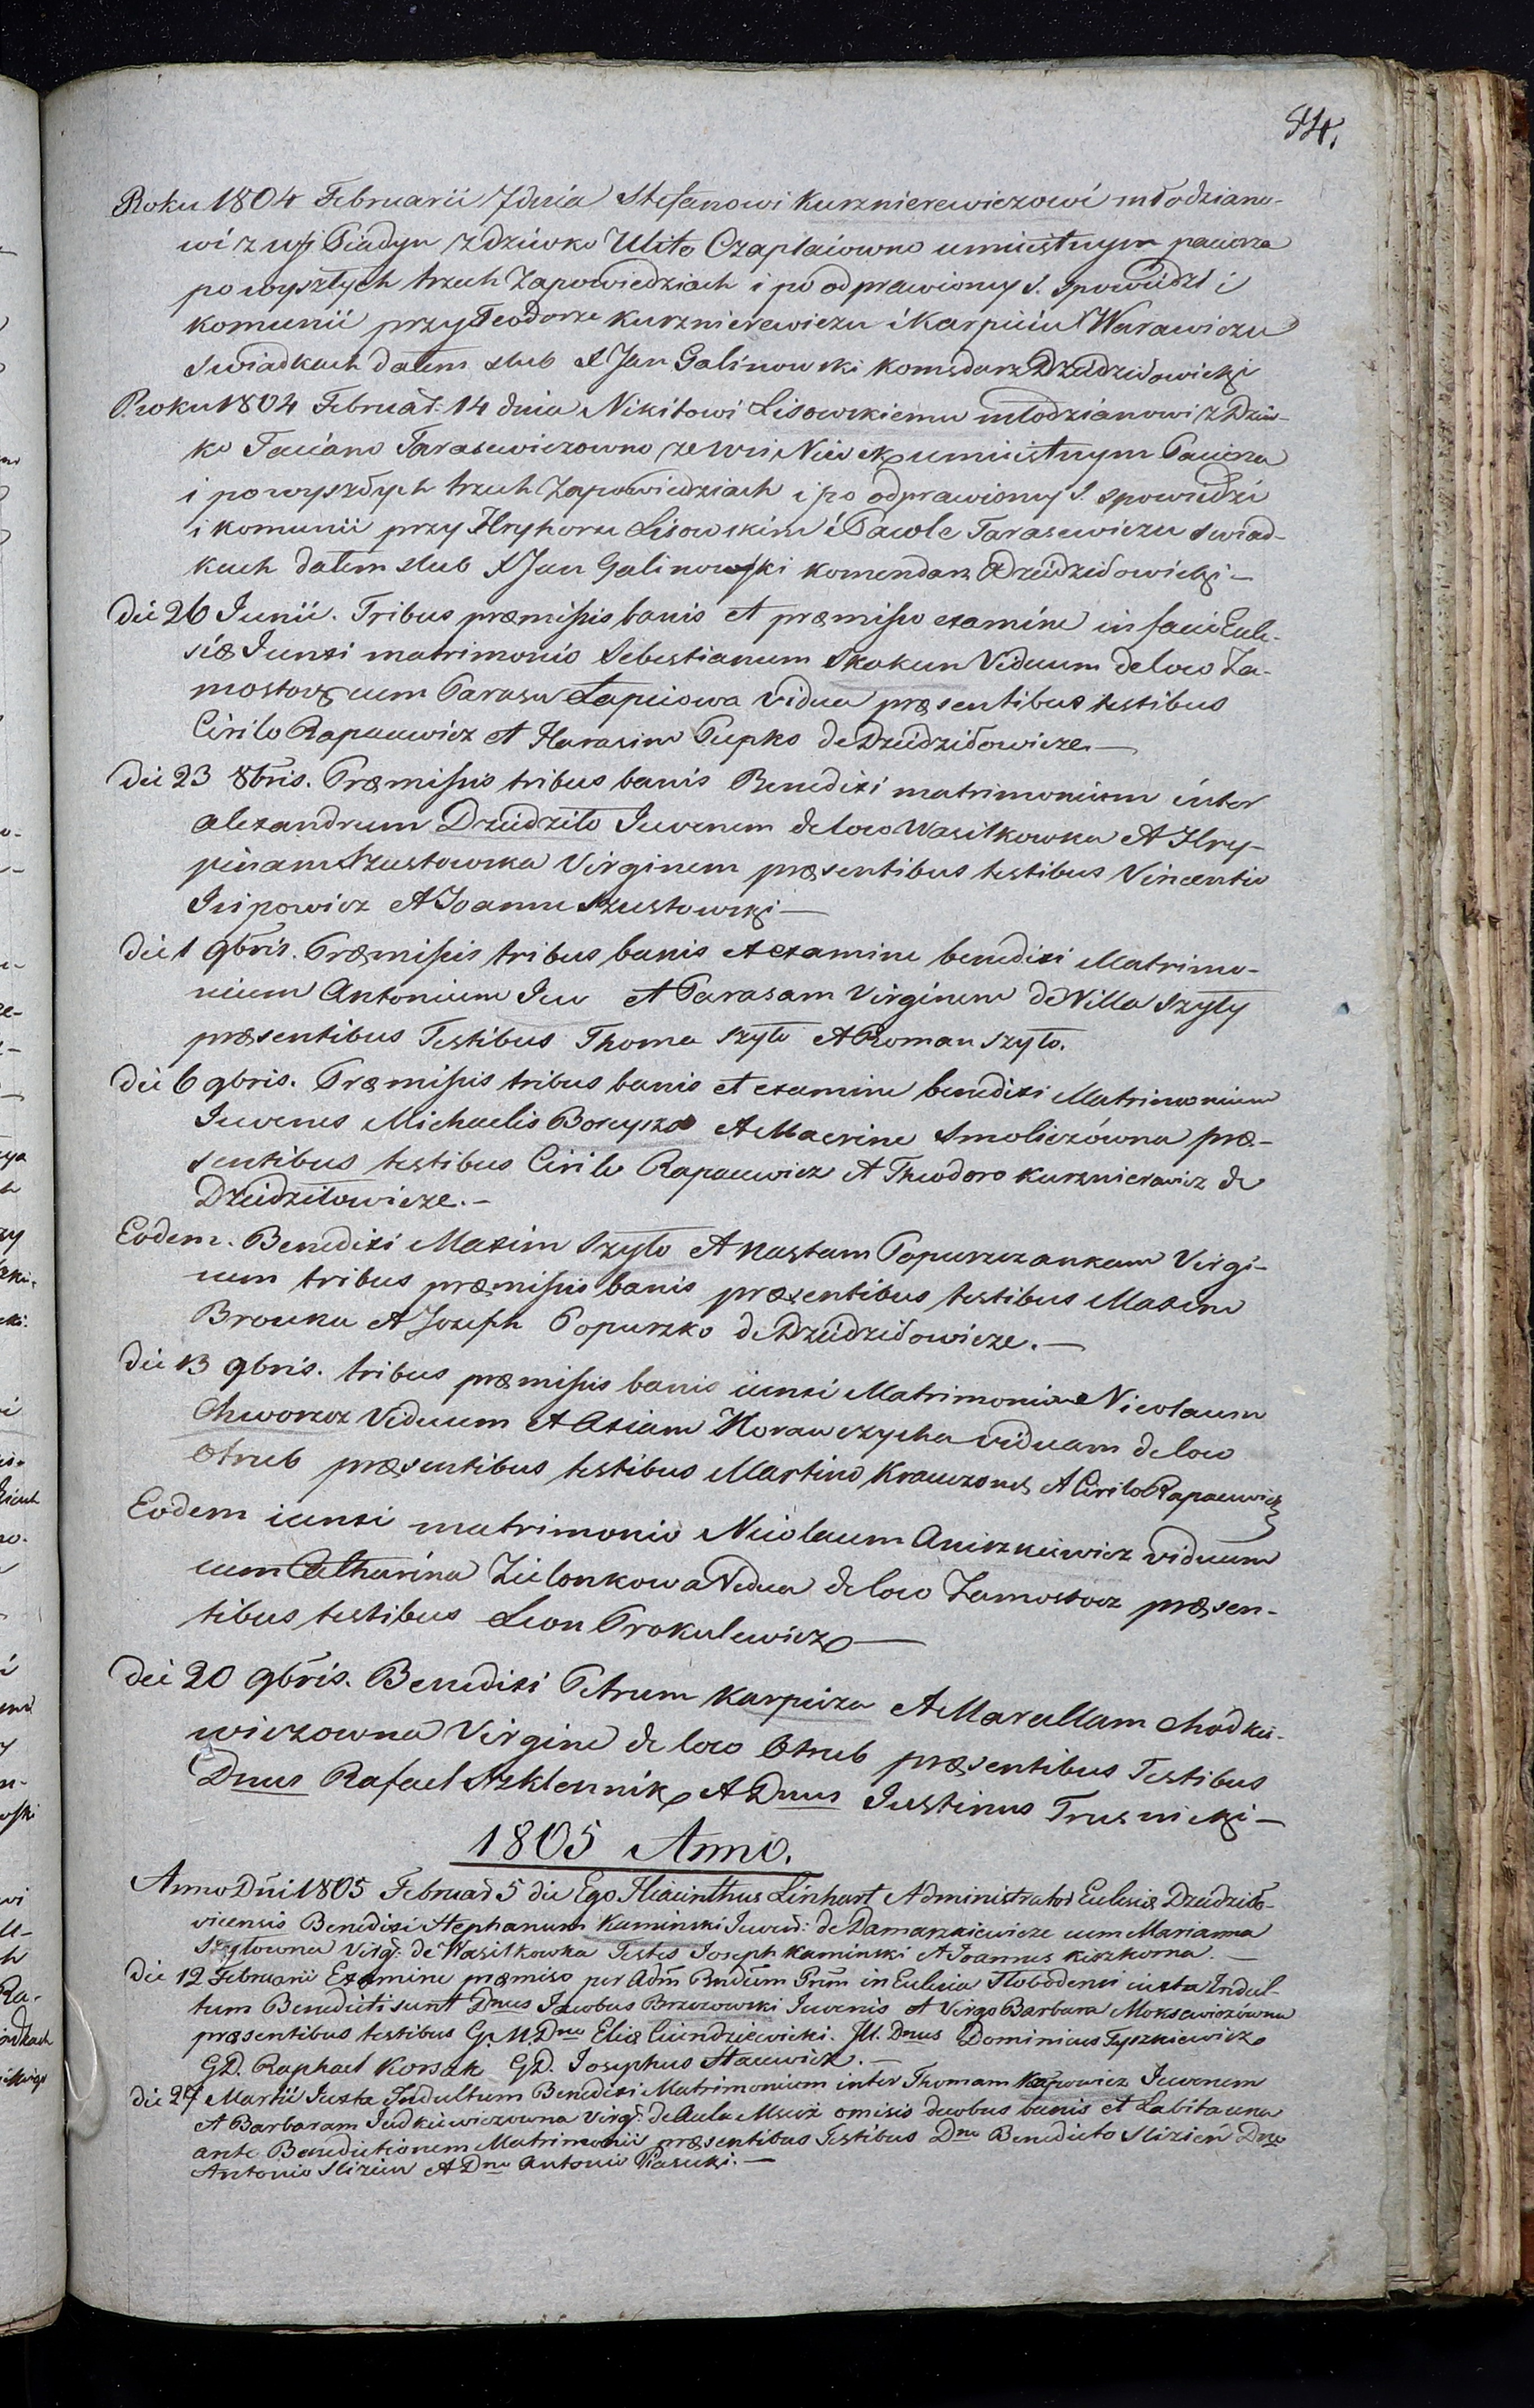 Roku 1804 Februarii 7 dnia Stefanowi Kurznierewiczowi młodziano-
wi z wsi Piadyn z dziwko Ulito Czaplaiowno umiiętnym paciorza
po wyszłych trzech Zapowiedziach i po odprawioney S. spowiedzi i
komunii przy Teodorze Kurznierewiczu i Karpiciu Warawiczu
swiadkach dałem slub X Jan Galinowski Komedarz Dzidziłowicki
Roku 1804 Februar: 14 dnia Nikitowi Lisowskiemu młodzianowi z Dziw-
ko Tacianą Tarasewiczowno ze wsi umiiętnym Pacierza
i po wyszłych trzech Zapowiedziach i po odprawioney S. spowiedzi
i komunii przy Hryhoru Lisowskim i Pawle Tarasewiczu swiad-
kach dałem slub X Jan Galinowski Komendarz Dzidziłowicki —
Die 26 Junii. Tribus præmissis banis et præmisso examine in facie Eccle-
siæ Junxi matrimonio Sebestianum Skakun Viduum de loco Za-
mostocz cum Parasu Łapciowa vidua præsentibus testibus
Cirilo Rapacewicz et Harasim Pupko de Dzidziłowicze. —
Die 23 8bris. Præmissis tribus banis Benedixi matrimonium inter
Alexandrum Dzidziło Iuvenem de loco Wasilkowka et Hry-
pinam Szustowska Virginem præsentibus testibus Vincentio
Isipowicz et Joanne Szustowski —
Die 1 9bris. Præmissis tribus banis et examine benedixi Matrimo-
nium Antonium Juv et Parasam Virginem de Villa Szyły
præsentibus Testibus Thoma Szyło et Roman Szyło.
Die 6 9bris. Præmissis tribus banis et examine benedixi Matrimonium
Iuvenes Michaelis et Macrine Smoliczówna præ-
sentibus testibus Cirilo Rapacewicz et Theodoro Kurznierewicz de
Dzidziłowicze. —
Eodem. Benedixi Maxim Szyło et Nastam Popurzczankam Virgi-
nem tribus præmissis banis præsentibus testibus Maxim
Brouka et Joseph Popurzko de Dzidziłowicze. —
Die 13 9bris. tribus præmissis banis iunxi Matrimonium Nicolaum
Chworocz Viduum et Axiam Morawczycha viduam de loco
Otrub præsentibus testibus Martino Krawzones et Cirilo Rapacewicz
Eodem iunxi matrimonio Nicolaum Aniszkiewicz viduum
cum Catharina Zielonkowa Vidua de loco Zamostocz præsen-
tibus testibus Leon Prokulewicz —
Die 20 9bris. Benedixi Petrum Karpieza et Marcellam Chodkie-
wiczowna Virgine de loco Otrub præsentibus Testibus
Dnus Rafael Szklennik et Dnus Iustinus Trusnicki —
1805 Anno.
Anno Dni 1805 Februar 5 die Ego Hiacinthus Linhart Administrator Eclesiæ Dzidziło-
vicensis Benedixi Stephanum Kaminski Juven: de Damarzkiewicze cum Marianna
Szyłowna Virg: de Wasilkowka Testes Joseph Kaminski et Joannes Kiszkorna. —
Die 12 Februarii Examine præmisso per Adm Rndum Prm in Eclesia Słobodensi iuxta Indul-
tum Benedicti sunt Dnus Jacobus Brzozowski Iuvenis et Virgo Barbara Moksewiczówna
præsentibus testibus G. M. Dno Eliæ Ciundziewicki. M. Dnus Dominicus Tyszkiewicz
GD. Raphael Korsak GD. Iosephus Stacewicz. —
Die 27 Martii Iuxta Indultum Benedixi Matrimonium inter Thomam Karpowicz Iuvenem
et Barbaram Judkiewiczowna Virg: de Aula Mscisz omisis duobus banis et habita una
ante Benedictionem Matrimonii præsentibus Testibus Dno Benedicto Slizień Dno
Antonio Slizien et Dno Antonio Piasecki. —